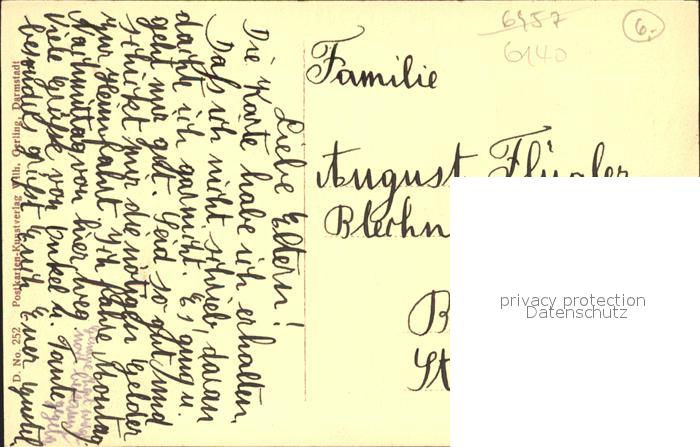 6957
6140
6.-
Familie
August Flügler
Blechn
B
St
privacy protection
Datenschutz
Liebe Eltern!
Die Karte habe ich erhalten,
Daß ich nicht schrieb, daran
dachte ich garnicht. Es ging u.
geht mir gut. Seid so gut und
schickt mir die nötigen Gelder
zur Heimfahrt. Ich fahre Montag
Nachmittag von hier weg.
Viele Grüße von Onkel u. Tante,
besonders grüßt Euch Euer Gustel
D. No. 252 Postkarten-Kunstverlag Wilh. Gerling, Darmstadt